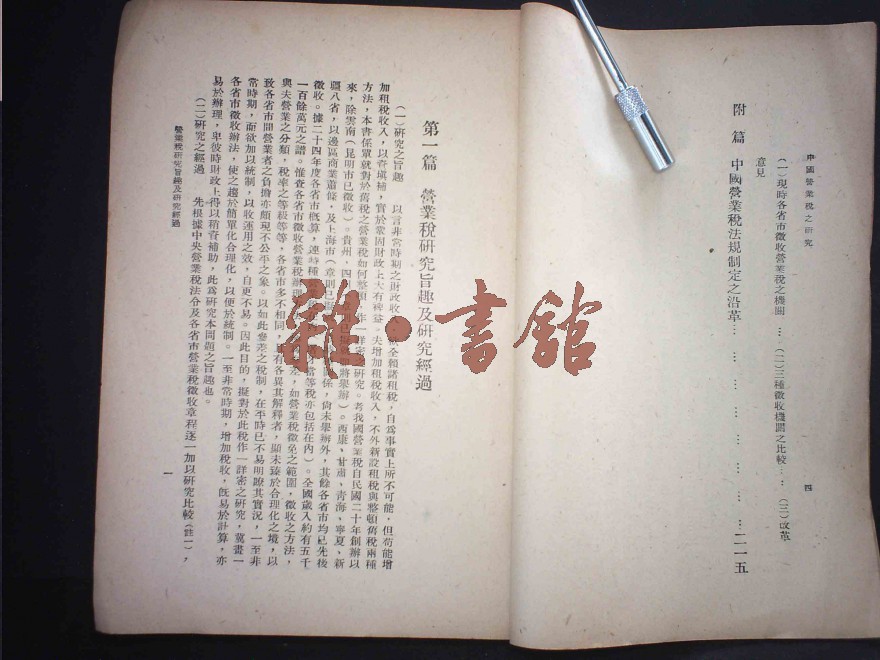 中國營業稅之研究
四
(一)現時各省市徵收營業稅之機關 … (二)三種徵收機關之比較 … (三)改革
意見
附篇 中國營業稅法規制定之沿革 … … … … … … … … 二一五
第一篇 營業稅研究旨趣及研究經過
(一)研究之旨趣 以言非常時期之財政收 全賴諸租稅,自為事實上所不可能,但苟能增
加租稅收入,以資填補,實於鞏固財政上大有裨益。夫增加租稅收入,不外新設租稅與整頓舊稅兩種
方法,本書係單就對於舊稅之營業稅如何整頓 作一詳密 研究。考我國營業稅自民國二十年創辦以
來,除雲南(昆明市已徵收)。貴州,四 將舉辦)。西康、甘肅、青海、寧夏、新
疆八省,以邊區商業蕭條,及上海市(章則已 係,尚未舉辦外,其餘各省市均已先後
徵收。據二十四年度各省市概算,連時種 當等稅亦包括在內)。全國歲入約有五千
一百餘萬元之譜。惟查各省市徵收營業稅辦理 差,如營業稅徵免之範圍,徵收之方法,
與夫營業之分類,稅率之等級等等,各省市多不相同, 有各異其解釋者,顯未臻於合理化之境,以
致各省市間營業者之負擔亦頗現不公平之象。以如此參差之稅制,在平時已不易明瞭其實況,一至非
常時期,而欲加以統制,以收運用之效,自更不易。因此目的,擬對於此稅作一詳密之研究,冀畫一
各省市徵收辦法,使之趨於簡單化合理化,以便於統制。一至非常時期,增加稅收,既易於計算,亦
易於辦理,卑彼時財政上得以稍資補助,此為研究本問題之旨趣也。
(二)研究之經過 先根據中央營業稅法令及各省市營業稅徵收章程逐一加以研究比較(註一),
營業稅研究旨趣及研究經過
一
雜·書館